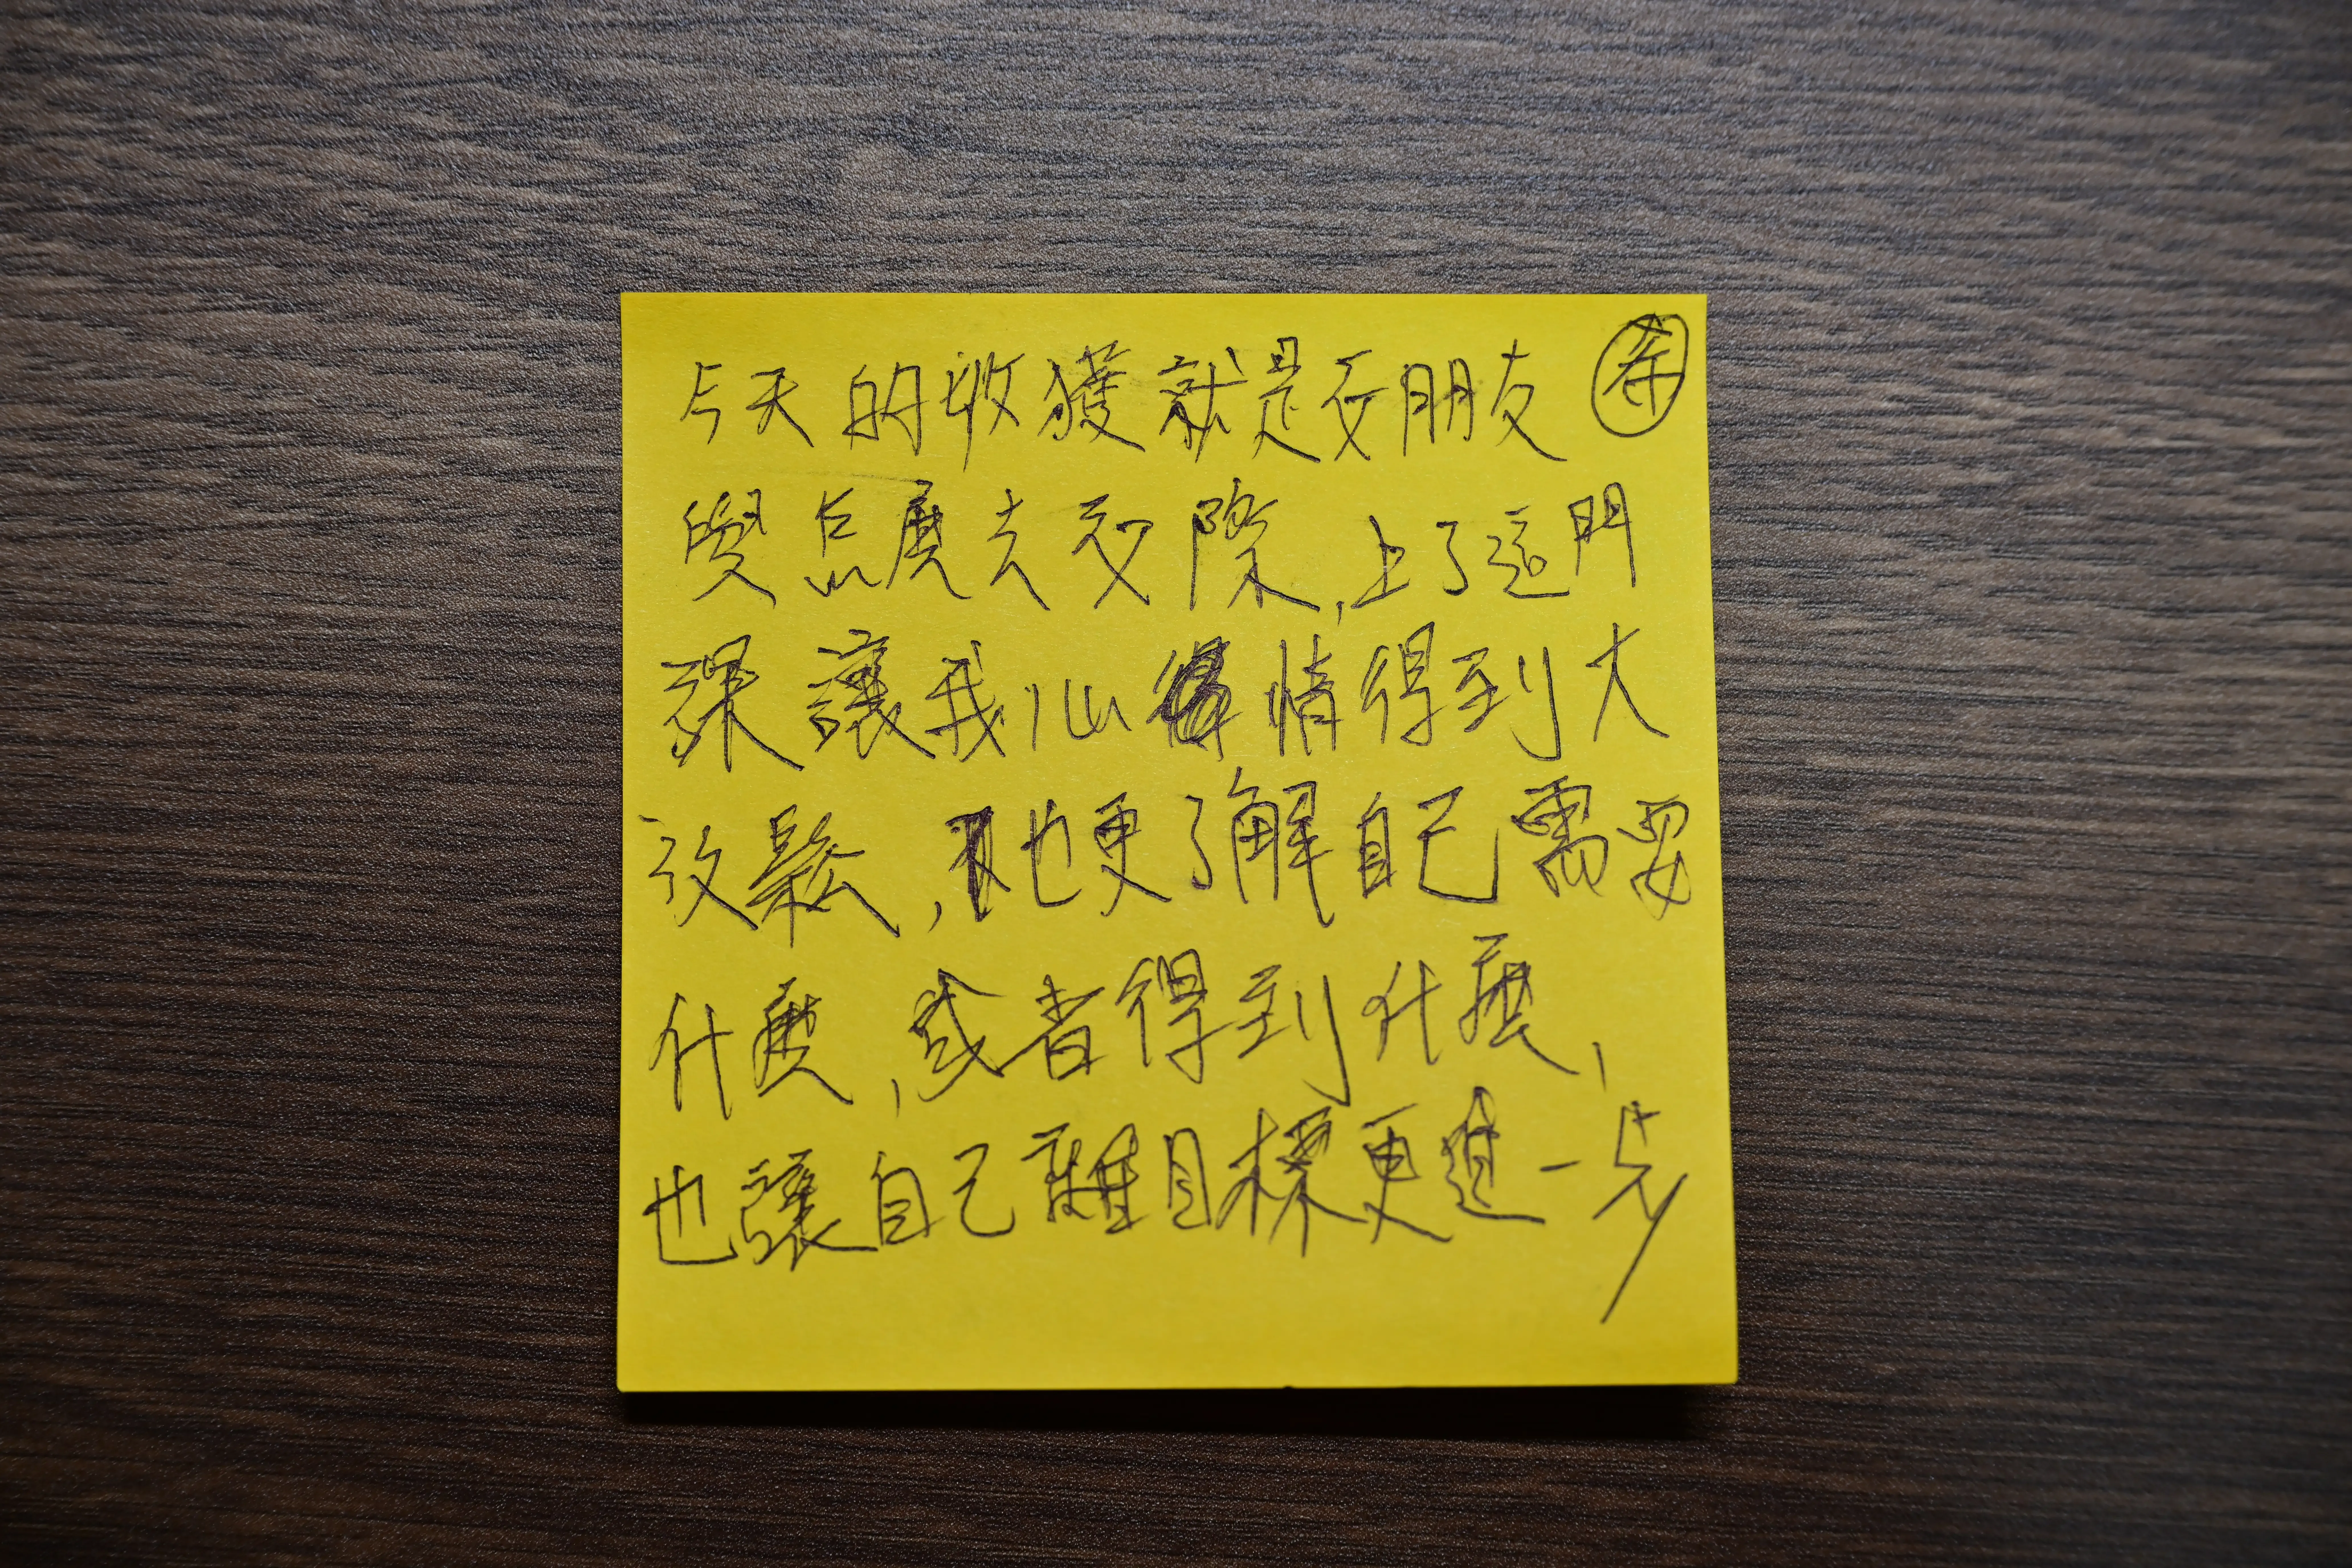 今天的收獲就是交朋友
要怎麼去交際,上了這門
課讓我心情得到大
放鬆,也更了解自己需要
什麼,或者得到什麼,
也讓自己離目標更進一步